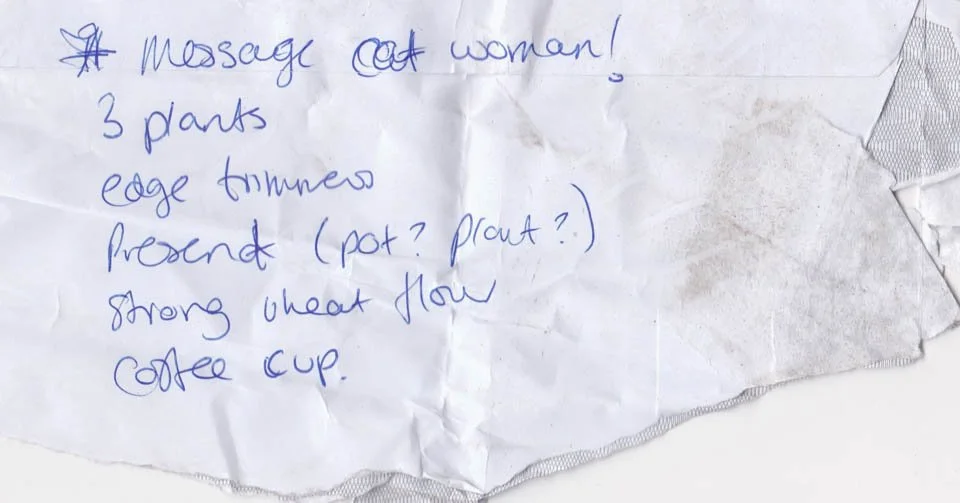 * Message cat woman!
3 plants
edge trimmers
Present (pot? plant?)
strong wheat flour
coffee cup.